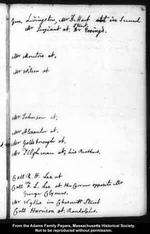 Gen. Livingston, Mr. F. Hart in Second
Mr. Sergiant at Mr.
Mr. Montrie at.
Mr. Wilson at
Mr. Johnson at.
Mr. Alexander at.
Mr. Goldsborough at.
Mr. Tilghman at, his Brothers.
Coll R. H. Lee at
Coll F. L. Lee at the Corner opposite Mr
George Clymer.
Mr Wythe in Chesnutt Street
Coll Harrison at. Randolphs.
From the Adams Family Papers, Massachusetts Historical Society.
Not to be reproduced without permission.